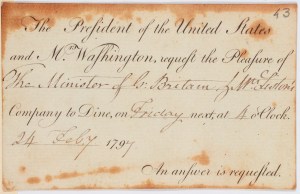 43
The President of the United States
and Mrs. Washington, request the Pleasure of
The Minister of Gt. Britain, & Mrs. Liston's
Company to Dine, on Friday next, at 4 o'Clock.
24 Feby 1797
An answer is requested.